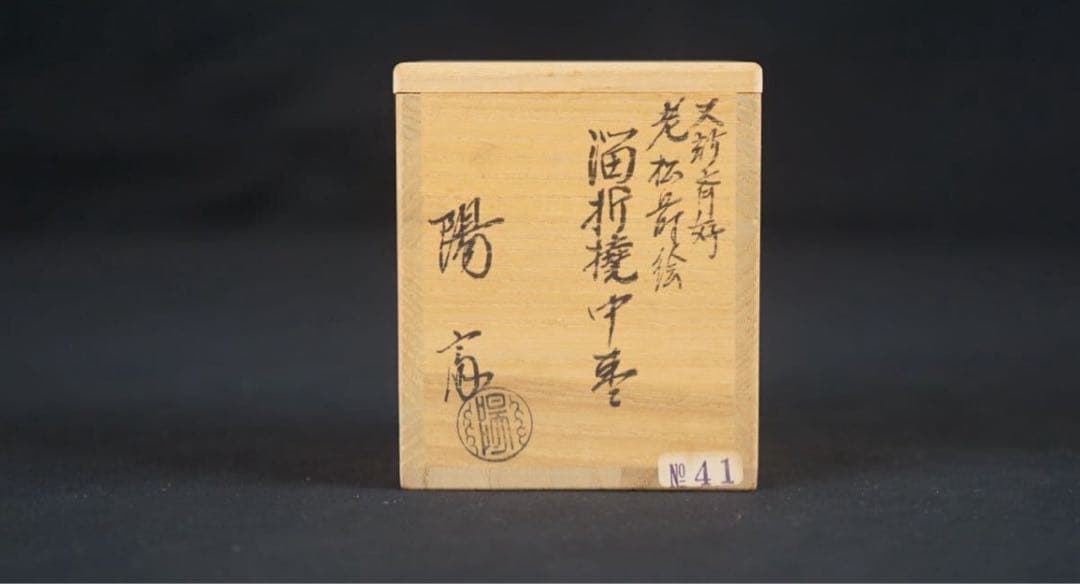 又玅斎好
老松蒔絵
溜折撓中棗
陽
№ 41